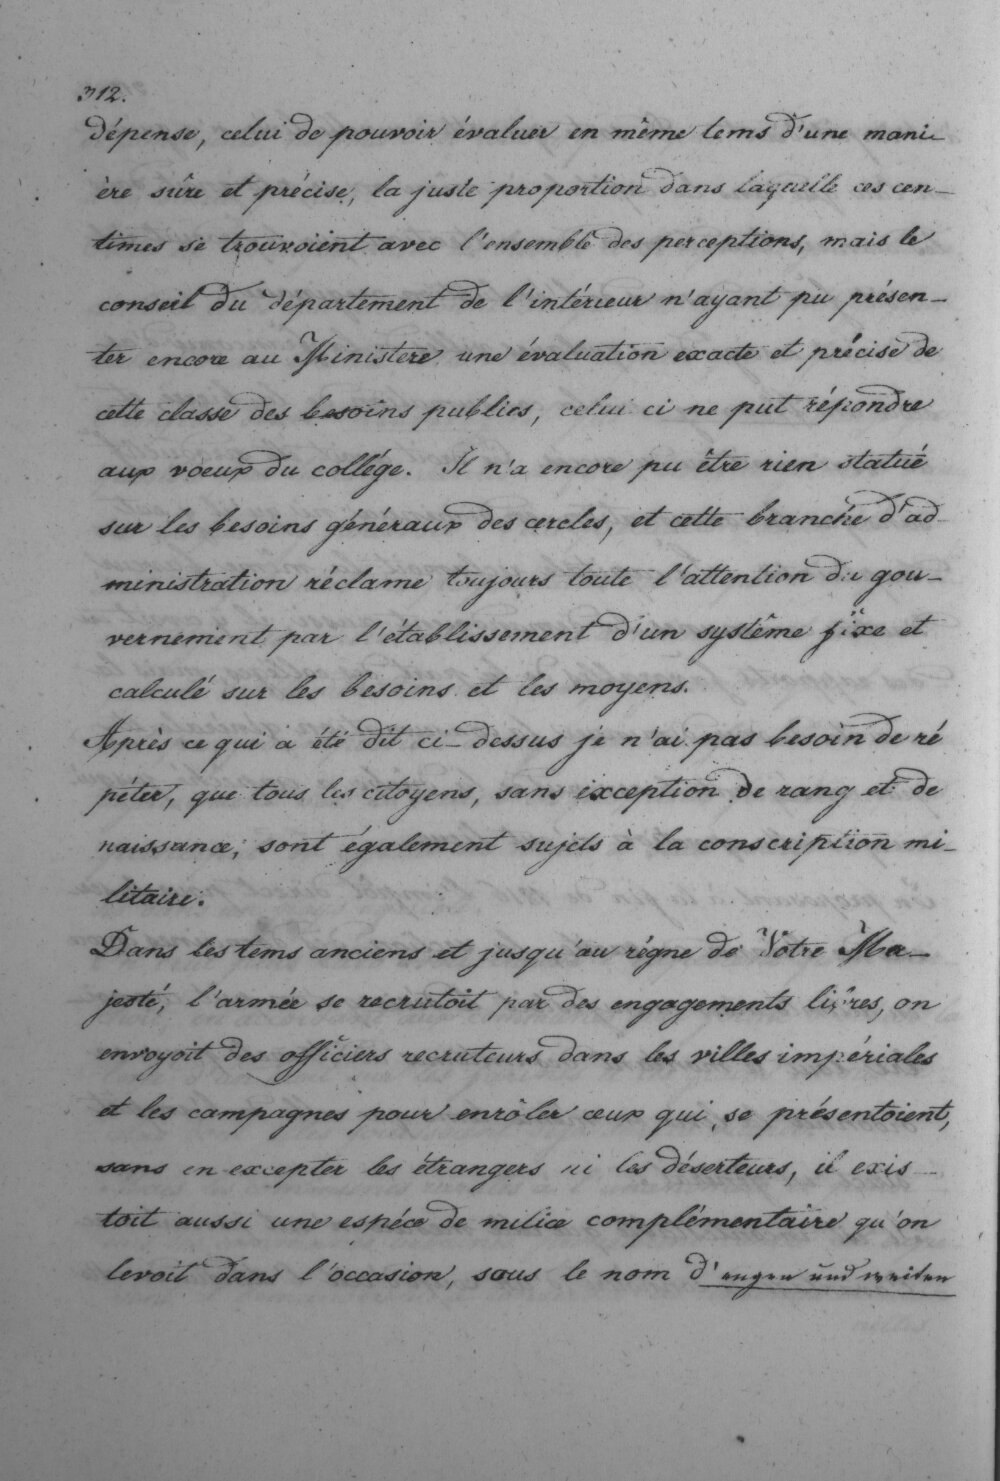 312.
dépense, celui de pouvoir évaluer en même tems d'une mani-
ère sûre et précise, la juste proportion dans laquelle ces cen-
times se trouvoient avec l'ensemble des perceptions, mais le
conseil du département de l'intérieur n'ayant pu présen-
ter encore au Ministere une évaluation exacte et précise de
cette classe des besoins publics, celui ci ne put répondre
aux voeux du collége. Il n'a encore pu être rien statué
sur les besoins généraux des cercles, et cette branche d'ad-
ministration réclame toujours toute l'attention du gou-
vernement par l'établissement d'un systême fixe et
calculé sur les besoins et les moyens.
Après ce qui a été dit ci-dessus je n'ai pas besoin de ré
péter, que tous les citoyens, sans exception de rang et de
naissance, sont également sujets à la conscription mi-
litaire.
Dans les tems anciens et jusqu'au règne de Votre Ma-
jesté, l'armée se recrutoit par des engagements libres, on
envoyoit des officiers recruteurs dans les villes impériales
et les campagnes pour enrôler ceux qui se présentoient,
sans en excepter les étrangers ni les déserteurs, il exis-
toit aussi une espéce de milice complémentaire qu'on
levoit dans l'occasion, sous le nom d'engen und weiten